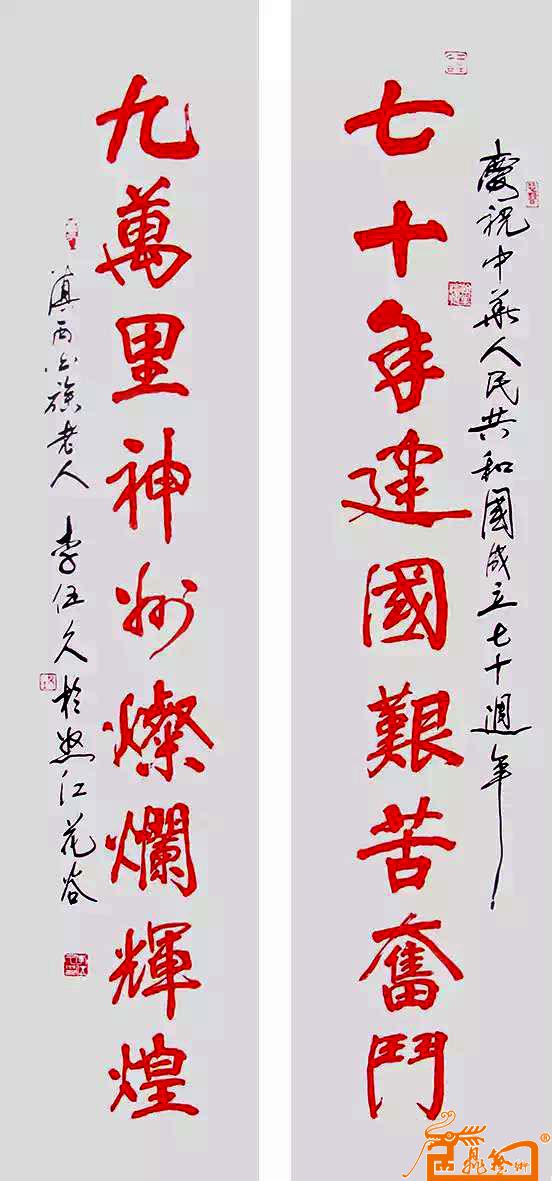 慶祝中華人民共和國成立七十週年！
七十年建國艱苦奮鬥
九萬里神州燦爛輝煌
滇西白族老人李伍久於怒江花谷